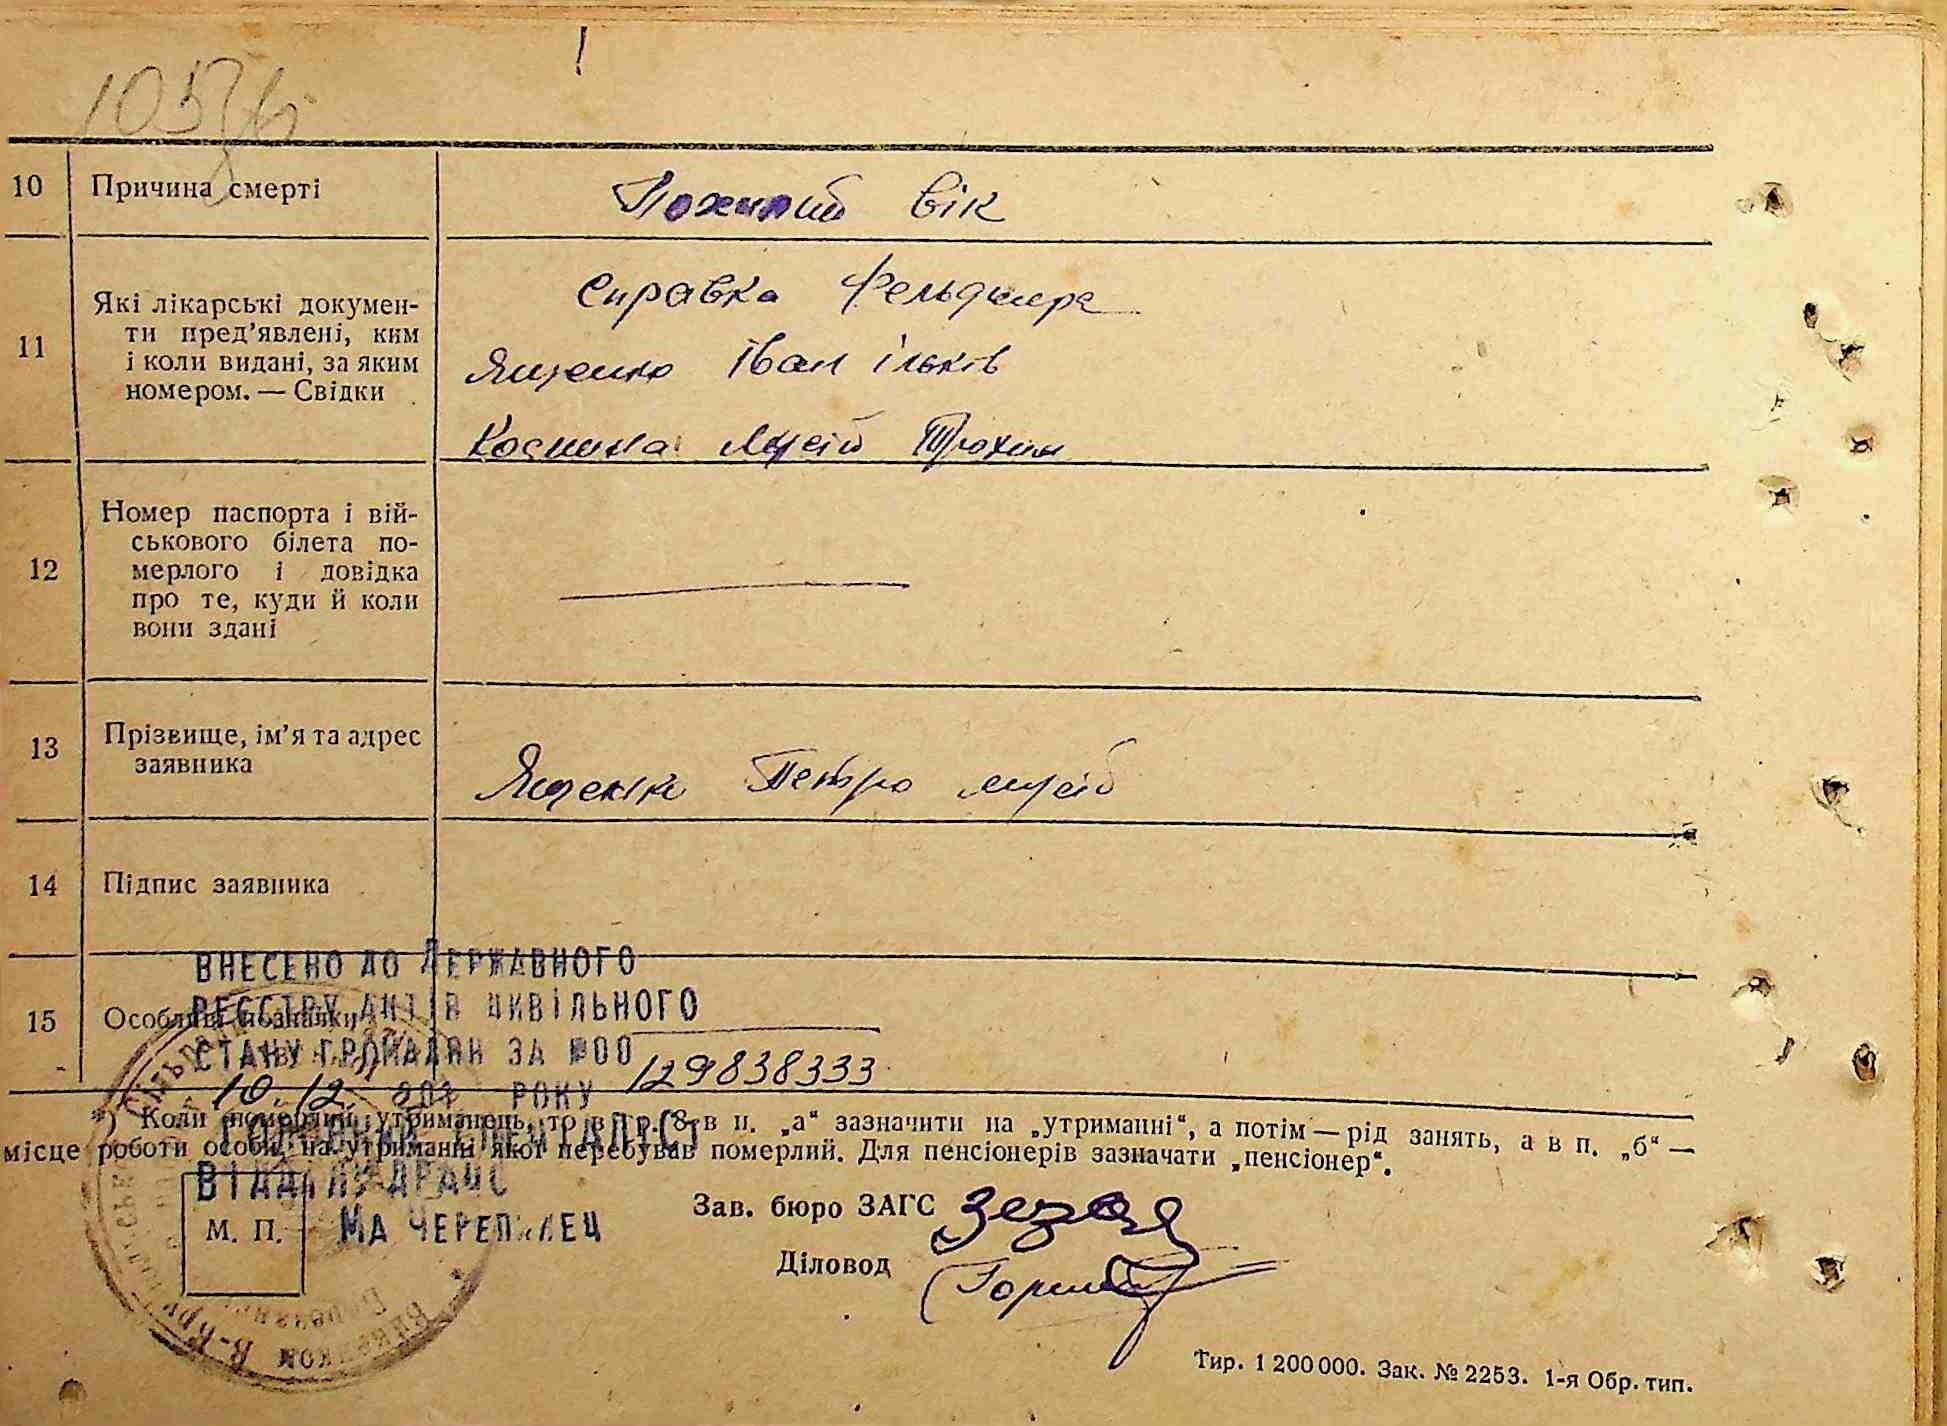 10 Причина смерті Похилий вік
11 Які лікарські докумен-
ти пред’явлені, ким
і коли видані, за яким
номером. — Свідки
Справка Фельдшера
Ященко Іван ільків
Мусій Трохим
12 Номер паспорта і вій-
ськового білета по-
мерлого і довідка
про те, куди й коли
вони здані
13 Прізвище, ім’я та адрес
заявника
Ященко Петро мусій
14 Підпис заявника
15 Особливі познаки
ВНЕСЕНО ДО ДЕРЖАВНОГО
РЕЄСТРУ АКТІВ ЦИВІЛЬНОГО
СТАНУ ГРОМАДЯН ЗА №00 129838333
10.12. РОКУ
*) Коли померлий утриманець, то в гр. 8 в п. „а“ зазначити на „утриманні“, а потім — рід занять, а в п. „б“ —
місце роботи особи, на утриманні якої перебував померлий. Для пенсіонерів зазначати „пенсіонер“.
ГОЛОВНИЙ СПЕЦІАЛІСТ
ВІДДІЛУ ДРАЦС
М. П.
МА ЧЕРЕПИНЕЦ
Зав. бюро ЗАГС
Діловод
Тир. 1 200 000. Зак. № 2253. 1-я Обр. тип.